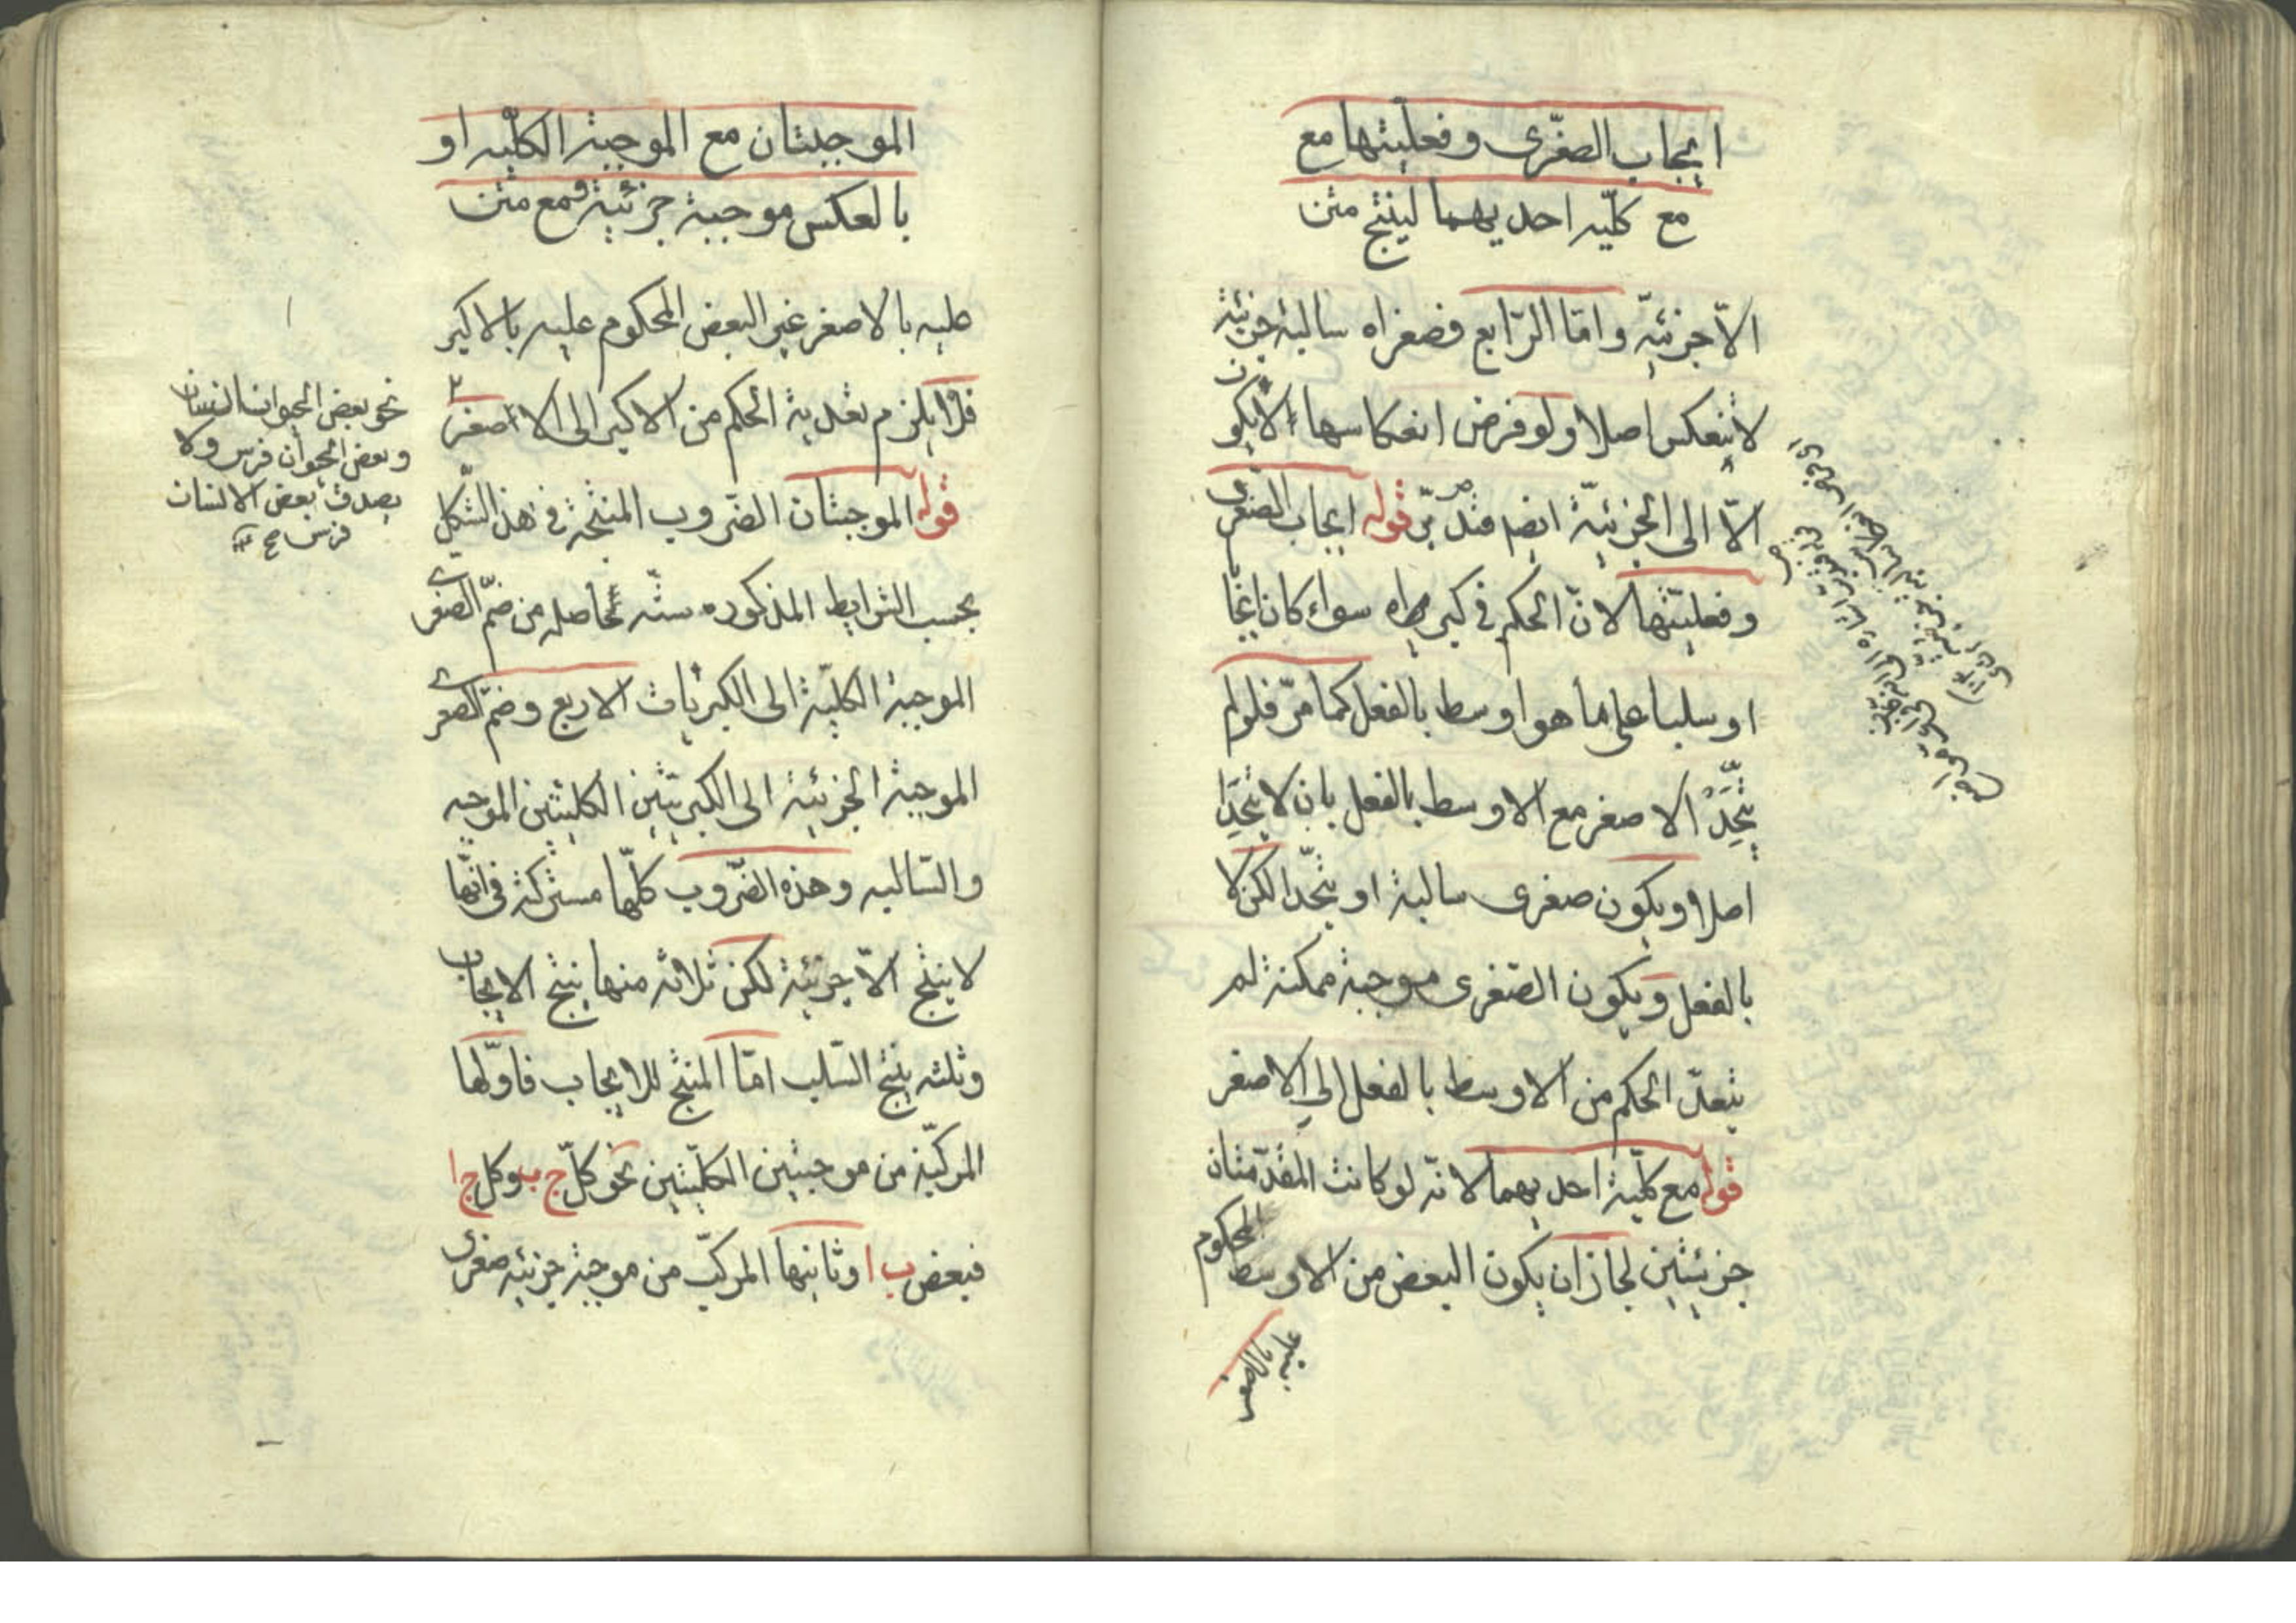 ايجاب الصغرى وفعليتها مع
مع كليه احديهما لينتج متن
الا جزئية واما الرابع فصغراه سالبة جزئية
لا ينعكس اصلا ولو فرض انعكاسها لا يكون
الا الى الجزئية ايضم فتدبر قوله ايجاب الصغرى
وفعليتها لان الحكم في كبراه سواء كان ايجا
او سلبا على ما هو اوسط بالفعل كما مر فلو لم
يتحد الاصغر مع الاوسط بالفعل بان لا يتحدا
اصلا ويكون صغرى سالبة او يتحدا لكن لا
بالفعل ويكون الصغرى موجبة ممكنة لم
يتعد الحكم من الاوسط بالفعل الى الاصغر
قوله مع كلية احديهما لانه لو كانت المقدمتان
جزئيتين لجاز ان يكون البعض من الاوسط المحكوم
عليه بالاصغر
الموجبتان مع الموجبة الكليه او
بالعكس موجبة جزئية ومع متن
عليه بالاصغر غير البعض المحكوم عليه بالاكبر
فلا يلزم تعدية الحكم من الاكبر الى الاصغر
قوله الموجبتان الضروب المنتجة في هذ الشكل
بحسب الشرايط المذكوره ستة حاصله من ضم الصغرى
الموجبة الكلية الى الكبريات الاربع وضم الصغرى
الموجبة الجزئية الى الكبريتين الكليتين الموجبه
والسالبه وهذه الضروب كلها مشتركة في انها
لا ينتج الا جزئية لكن ثلاثه منها ينتج الايجاب
وثلثه ينتج السلب اما المنتج للايجاب فاولها
المركب من موجبتين الكليتين نحو كل ج ب وكل ج ا
فبعض ب ا وثانيها المركب من موجبة جزئيه صغرى
نحو بعض الحيوان انسان
وبعض الحيوان فرس ولا
يصدق بعض الانسان
فرس